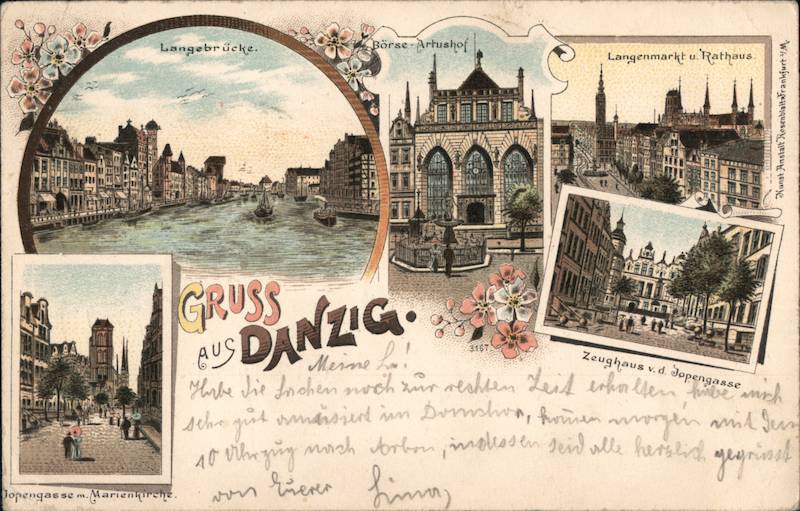 Langebrücke.
Börse-Artushof
Langenmarkt u. Rathaus.
Kunst Anstalt Rosenblatt Frankfurt a/M.
GRUSS
AUS DANZIG.
3167.
Zeughaus v. d. Jopengasse
Jopengasse m. Marienkirche.
Meine L!
Habe die Sachen noch zur rechten Zeit erhalten, habe mich
sehr gut amüsiert im kommen morgen mit dem
10 Uhrzug nach indessen seid alle herzlich gegrüsst
von Euerer